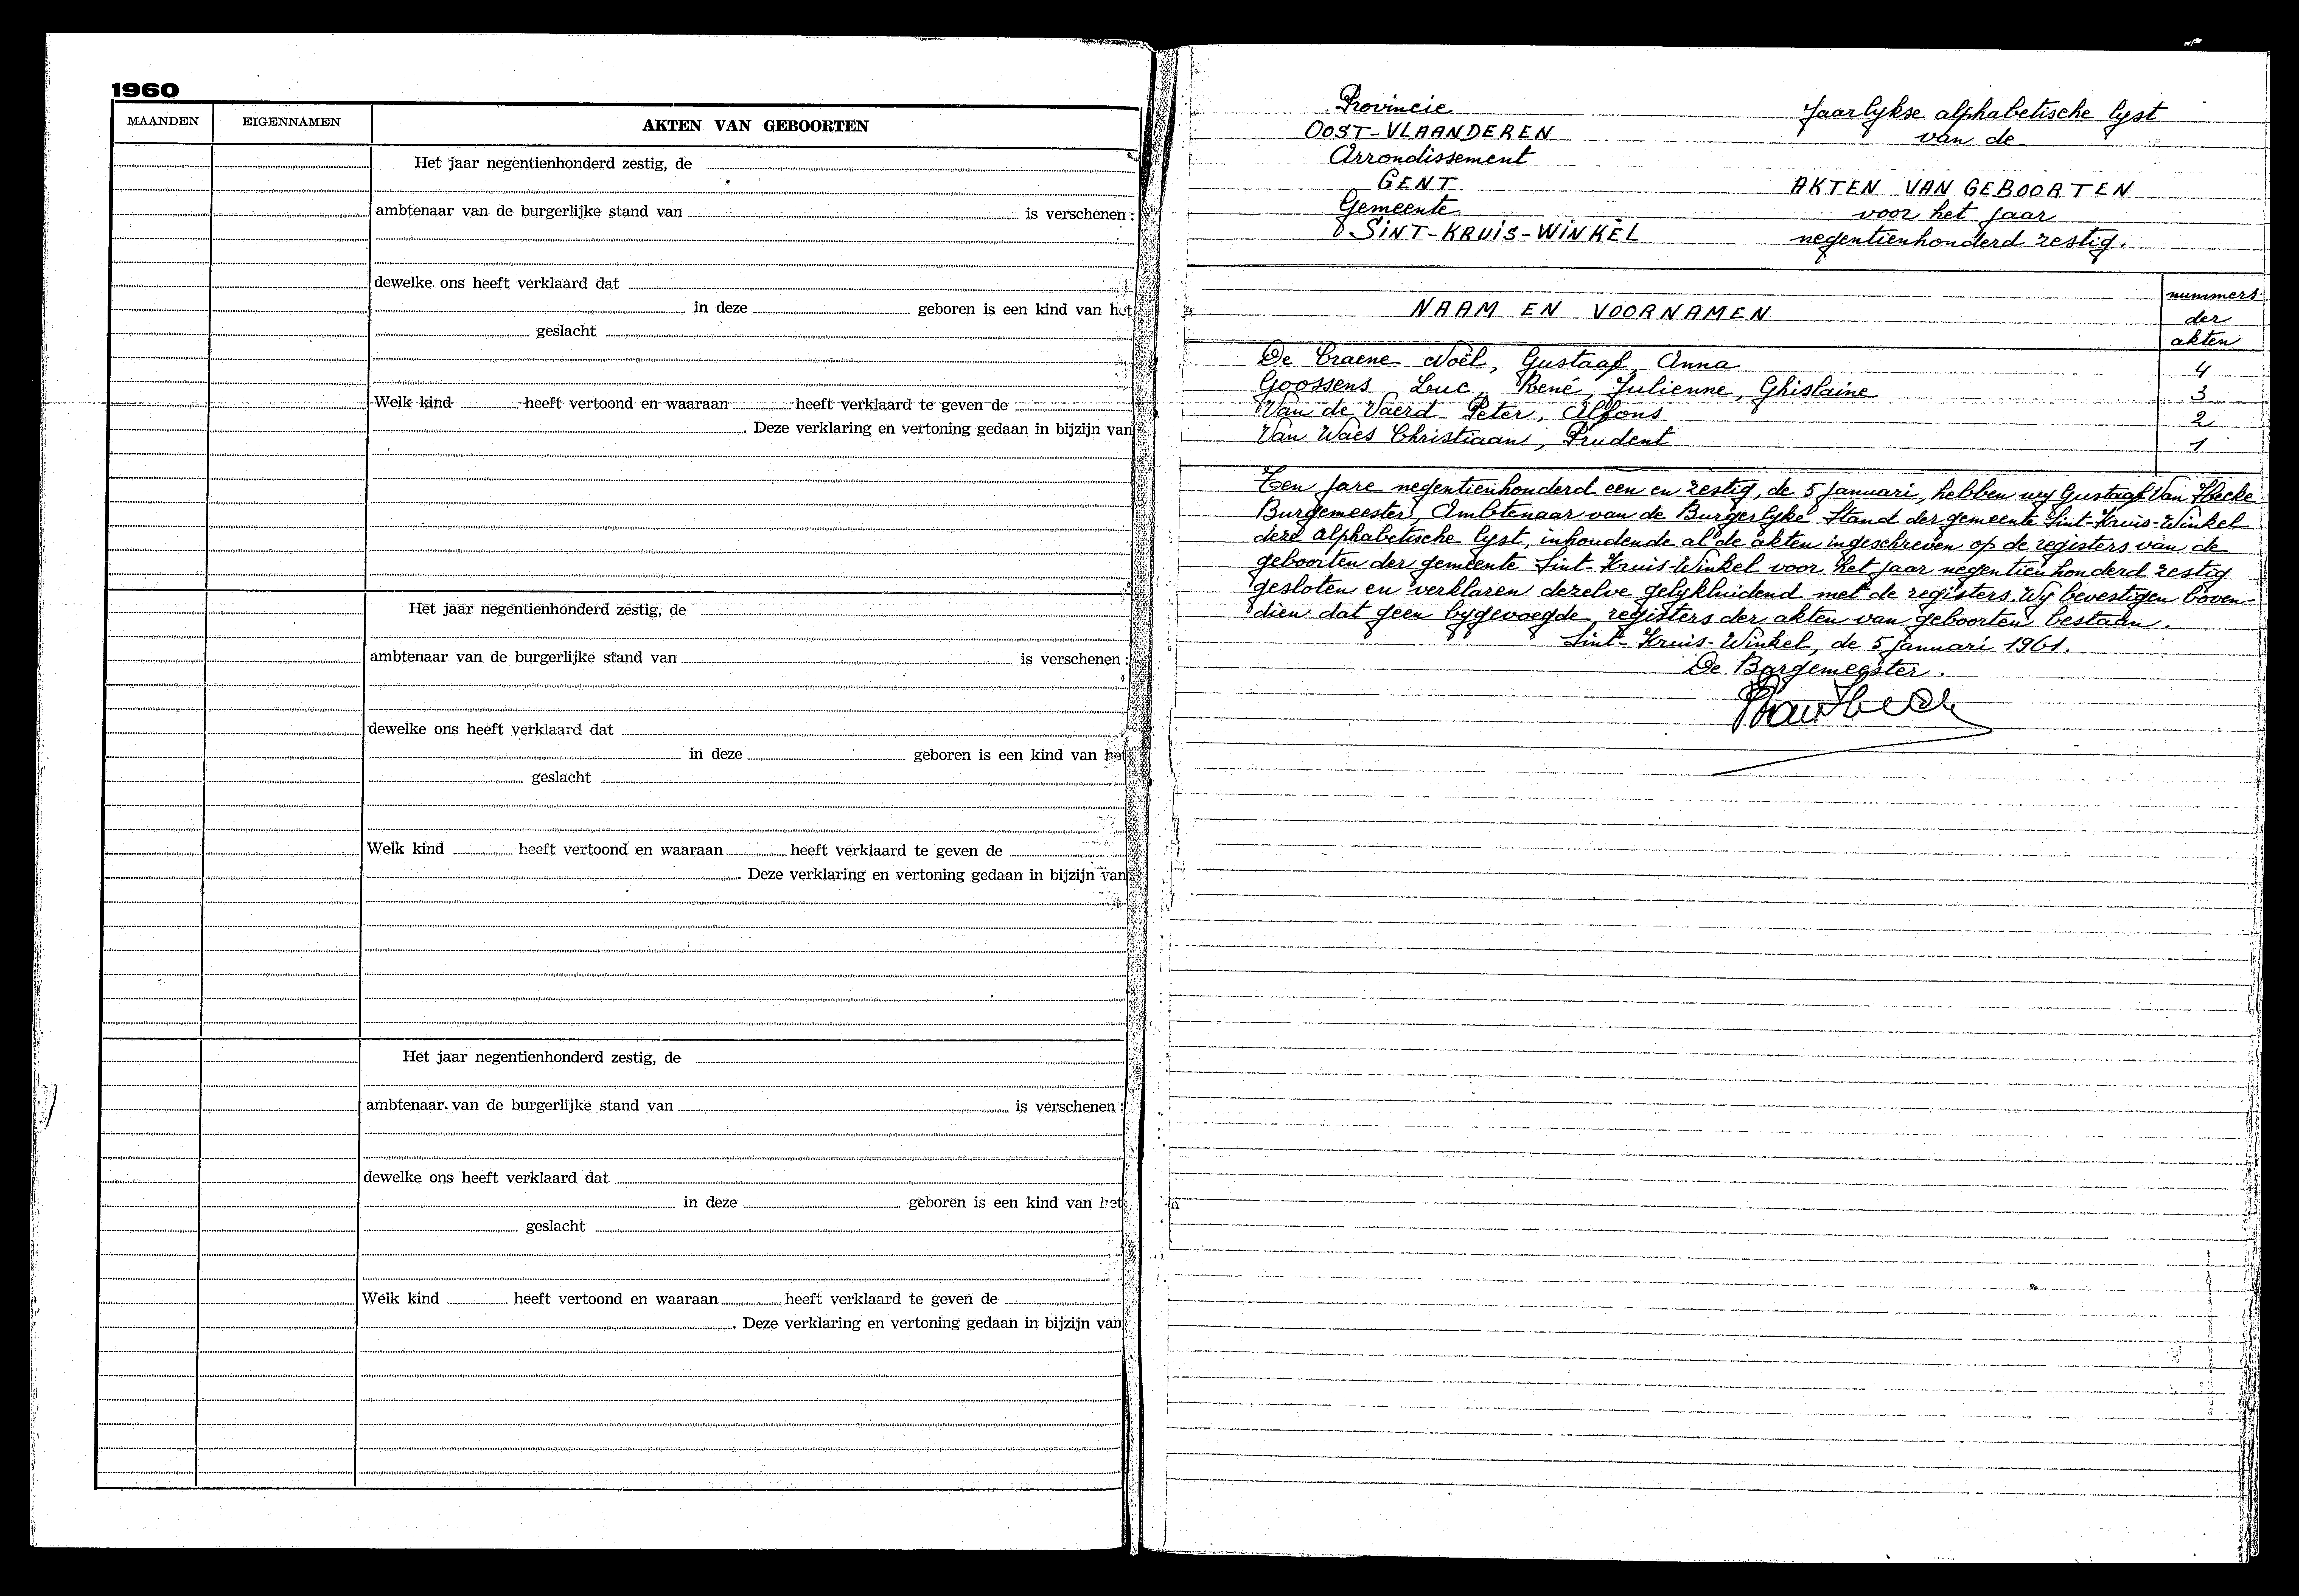 1960
MAANDEN EIGENNAMEN AKTEN VAN GEBOORTEN
Het jaar negentienhonderd zestig, de
ambtenaar van de burgerlijke stand van is verschenen :
dewelke ons heeft verklaard dat
in deze geboren is een kind van het
geslacht
Welk kind heeft vertoond en waaraan heeft verklaard te geven de
. Deze verklaring en vertoning gedaan in bijzijn van
Het jaar negentienhonderd zestig, de
ambtenaar van de burgerlijke stand van is verschenen :
dewelke ons heeft verklaard dat
in deze geboren is een kind van het
geslacht
Welk kind heeft vertoond en waaraan heeft verklaard te geven de
. Deze verklaring en vertoning gedaan in bijzijn van
Het jaar negentienhonderd zestig, de
ambtenaar van de burgerlijke stand van is verschenen :
dewelke ons heeft verklaard dat
in deze geboren is een kind van het
geslacht
Welk kind heeft vertoond en waaraan heeft verklaard te geven de
. Deze verklaring en vertoning gedaan in bijzijn van
Provincie
OOST-VLAANDEREN
Arrondissement
GENT
Gemeente
SINT-KRUIS-WINKEL
Jaarlykse alphabetische lyst
van de
AKTEN VAN GEBOORTEN
voor het jaar
negentienhonderd zestig.
NAAM EN VOORNAMEN
nummers
der
akten
De Craene Noël, Gustaaf, Anna 4
Goossens Luc, René, Julienne, Ghislaine 3
Van de Vaerd Peter, Alfons 2
Van Waes Christiaan, Prudent 1
Ten jare negentienhonderd een en zestig, de 5 januari, hebben wy Gustaaf Van Hecke
Burgemeester, Ambtenaar van de Burgerlyke Stand der gemeente Sint-Kruis-Winkel
deze alphabetische lyst, inhoudende al de akten ingeschreven op de registers van de
geboorten der gemeente Sint-Kruis-Winkel voor het jaar negentienhonderd zestig
gesloten en verklaren dezelve gelykluidend met de registers. Wy bevestigen boven-
dien dat geen bygevoegde registers der akten van geboorten bestaan.
Sint-Kruis-Winkel, de 5 januari 1961.
De Burgemeester.